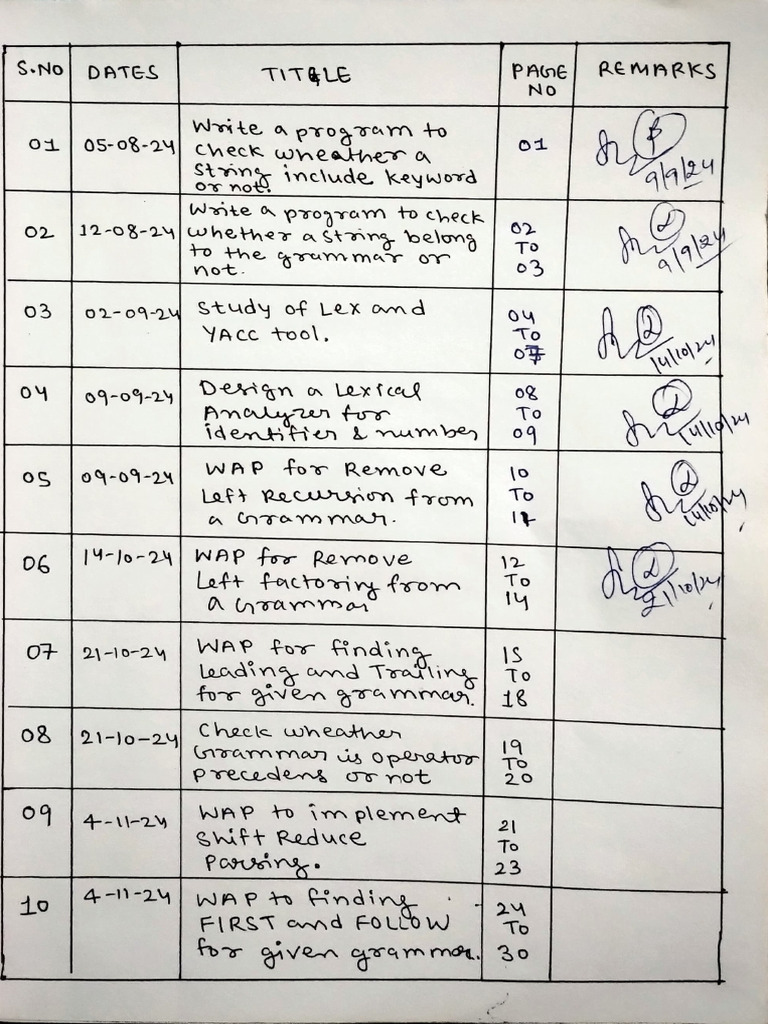 S.NO DATES TITLE PAGE NO REMARKS
01 05-08-24 Write a program to 01
check wheather a
string include keyword
or not.
9/9/24
02 12-08-24 Write a program to check 02
whether a string belong TO
to the grammar or 03
not.
9/9/24
03 02-09-24 Study of Lex and 04
YACC tool. TO
07
14/10/24
04 09-09-24 Design a Lexical 08
Analyzer for TO
identifier & number 09
14/10/24
05 09-09-24 WAP for Remove 10
Left Recursion from TO
a Grammar. 11
14/10/24
06 14-10-24 WAP for Remove 12
Left factoring from TO
a Grammar 14
21/10/24
07 21-10-24 WAP for finding 15
Leading and Trailing TO
for given grammar. 18
08 21-10-24 Check wheather 19
Grammar is operator TO
precedens or not 20
09 4-11-24 WAP to implement 21
Shift Reduce TO
Parsing. 23
10 4-11-24 WAP to finding 24
FIRST and FOLLOW TO
for given grammar. 30